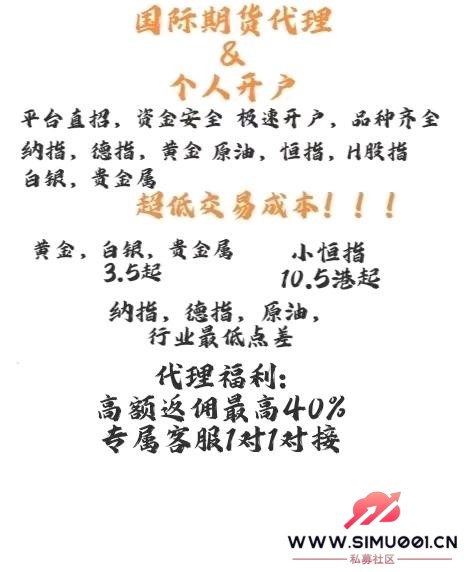 国际期货代理
&
个人开户
平台直招，资金安全 极速开户，品种齐全
纳指，德指，黄金 原油，恒指，H股指
白银，贵金属
超低交易成本！！！
黄金，白银，贵金属
3.5起
小恒指
10.5港起
纳指，德指，原油，
行业最低点差
代理福利：
高额返佣最高40%
专属客服1对1对接
WWW.SIMU001.CN
私募社区